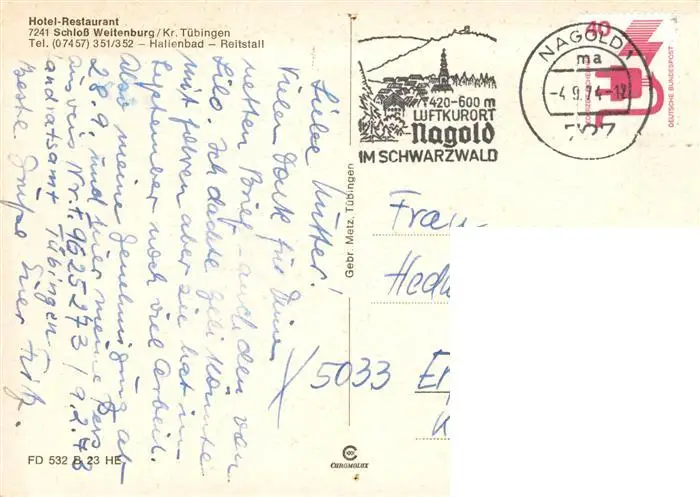 Hotel-Restaurant
7241 Schloß Weitenburg/Kr. Tübingen
Tel. (07457) 351/352 – Hallenbad – Reitstall
Liebe Mutter!
Vielen Dank für Deinen
netten Brief – auch den von
Lilo. Ich dachte Geli könnte
mit fahren aber sie hat im
September noch viel Arbeit.
Also meine Genehmigung ab
28.9. und hier meine Pers
ausweis Nr. F 9625273 / 9.2.73
Landratsamt Tübingen.
Beste Grüße Euer Fritz.
FD 532 B 23 HE
Gebr. Metz, Tübingen
CHROMOLUX
420-600 m
LUFTKURORT
Nagold
IM SCHWARZWALD
NAGOLD 1
ma
-4.9.74-12
40
DEUTSCHE BUNDESPOST
Frau
Hed
5033